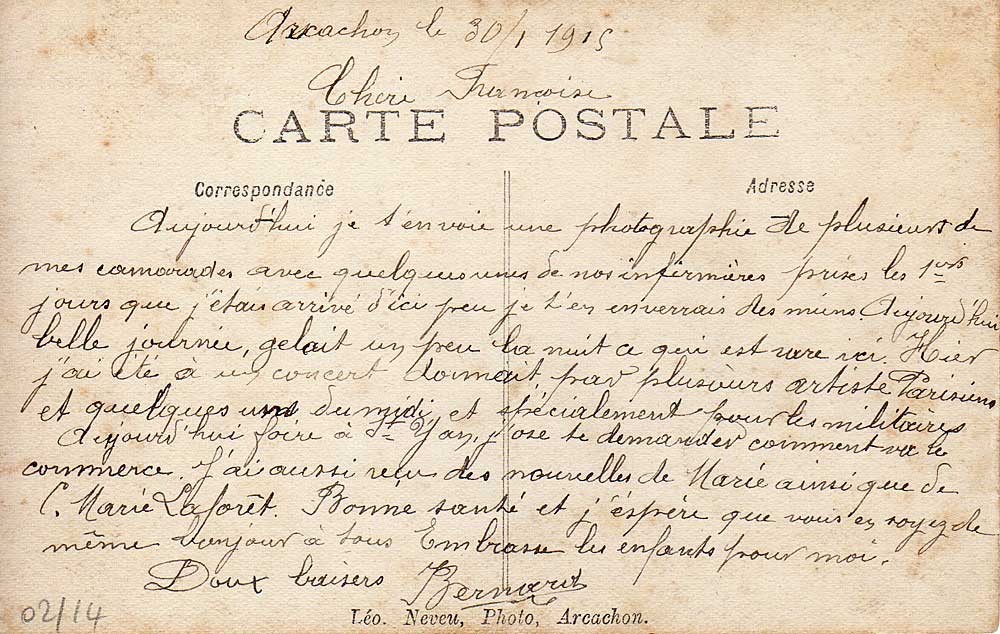 Arcachon le 30/1 1915
Chère Françoise
CARTE POSTALE
Correspondance
Adresse
Aujourd'hui je t'envoie une photographie de plusieurs de
mes camarades avec quelques unes de nos infirmières prises les 1ers
jours que j'étais arrivé d'ici peu je t'en enverrais des miens. Aujourd'hui
belle journée, gelait un peu la nuit ce qui est rare ici. Hier
j'ai été à un concert donnait par plusieurs artiste Parisiens
et quelques uns du midi et spécialement pour les militaires
Aujourd'hui foire à St Yan, j'ose te demander comment va le
commerce. J'ai aussi reçu des nouvelles de Marie ainsi que de
C. Marie Laforêt. Bonne santé et j'éspére que vous en soyez de
même bonjour à tous Embrasse les enfants pour moi.
Doux baisers Bernard
Léo. Neveu, Photo, Arcachon.
02/14